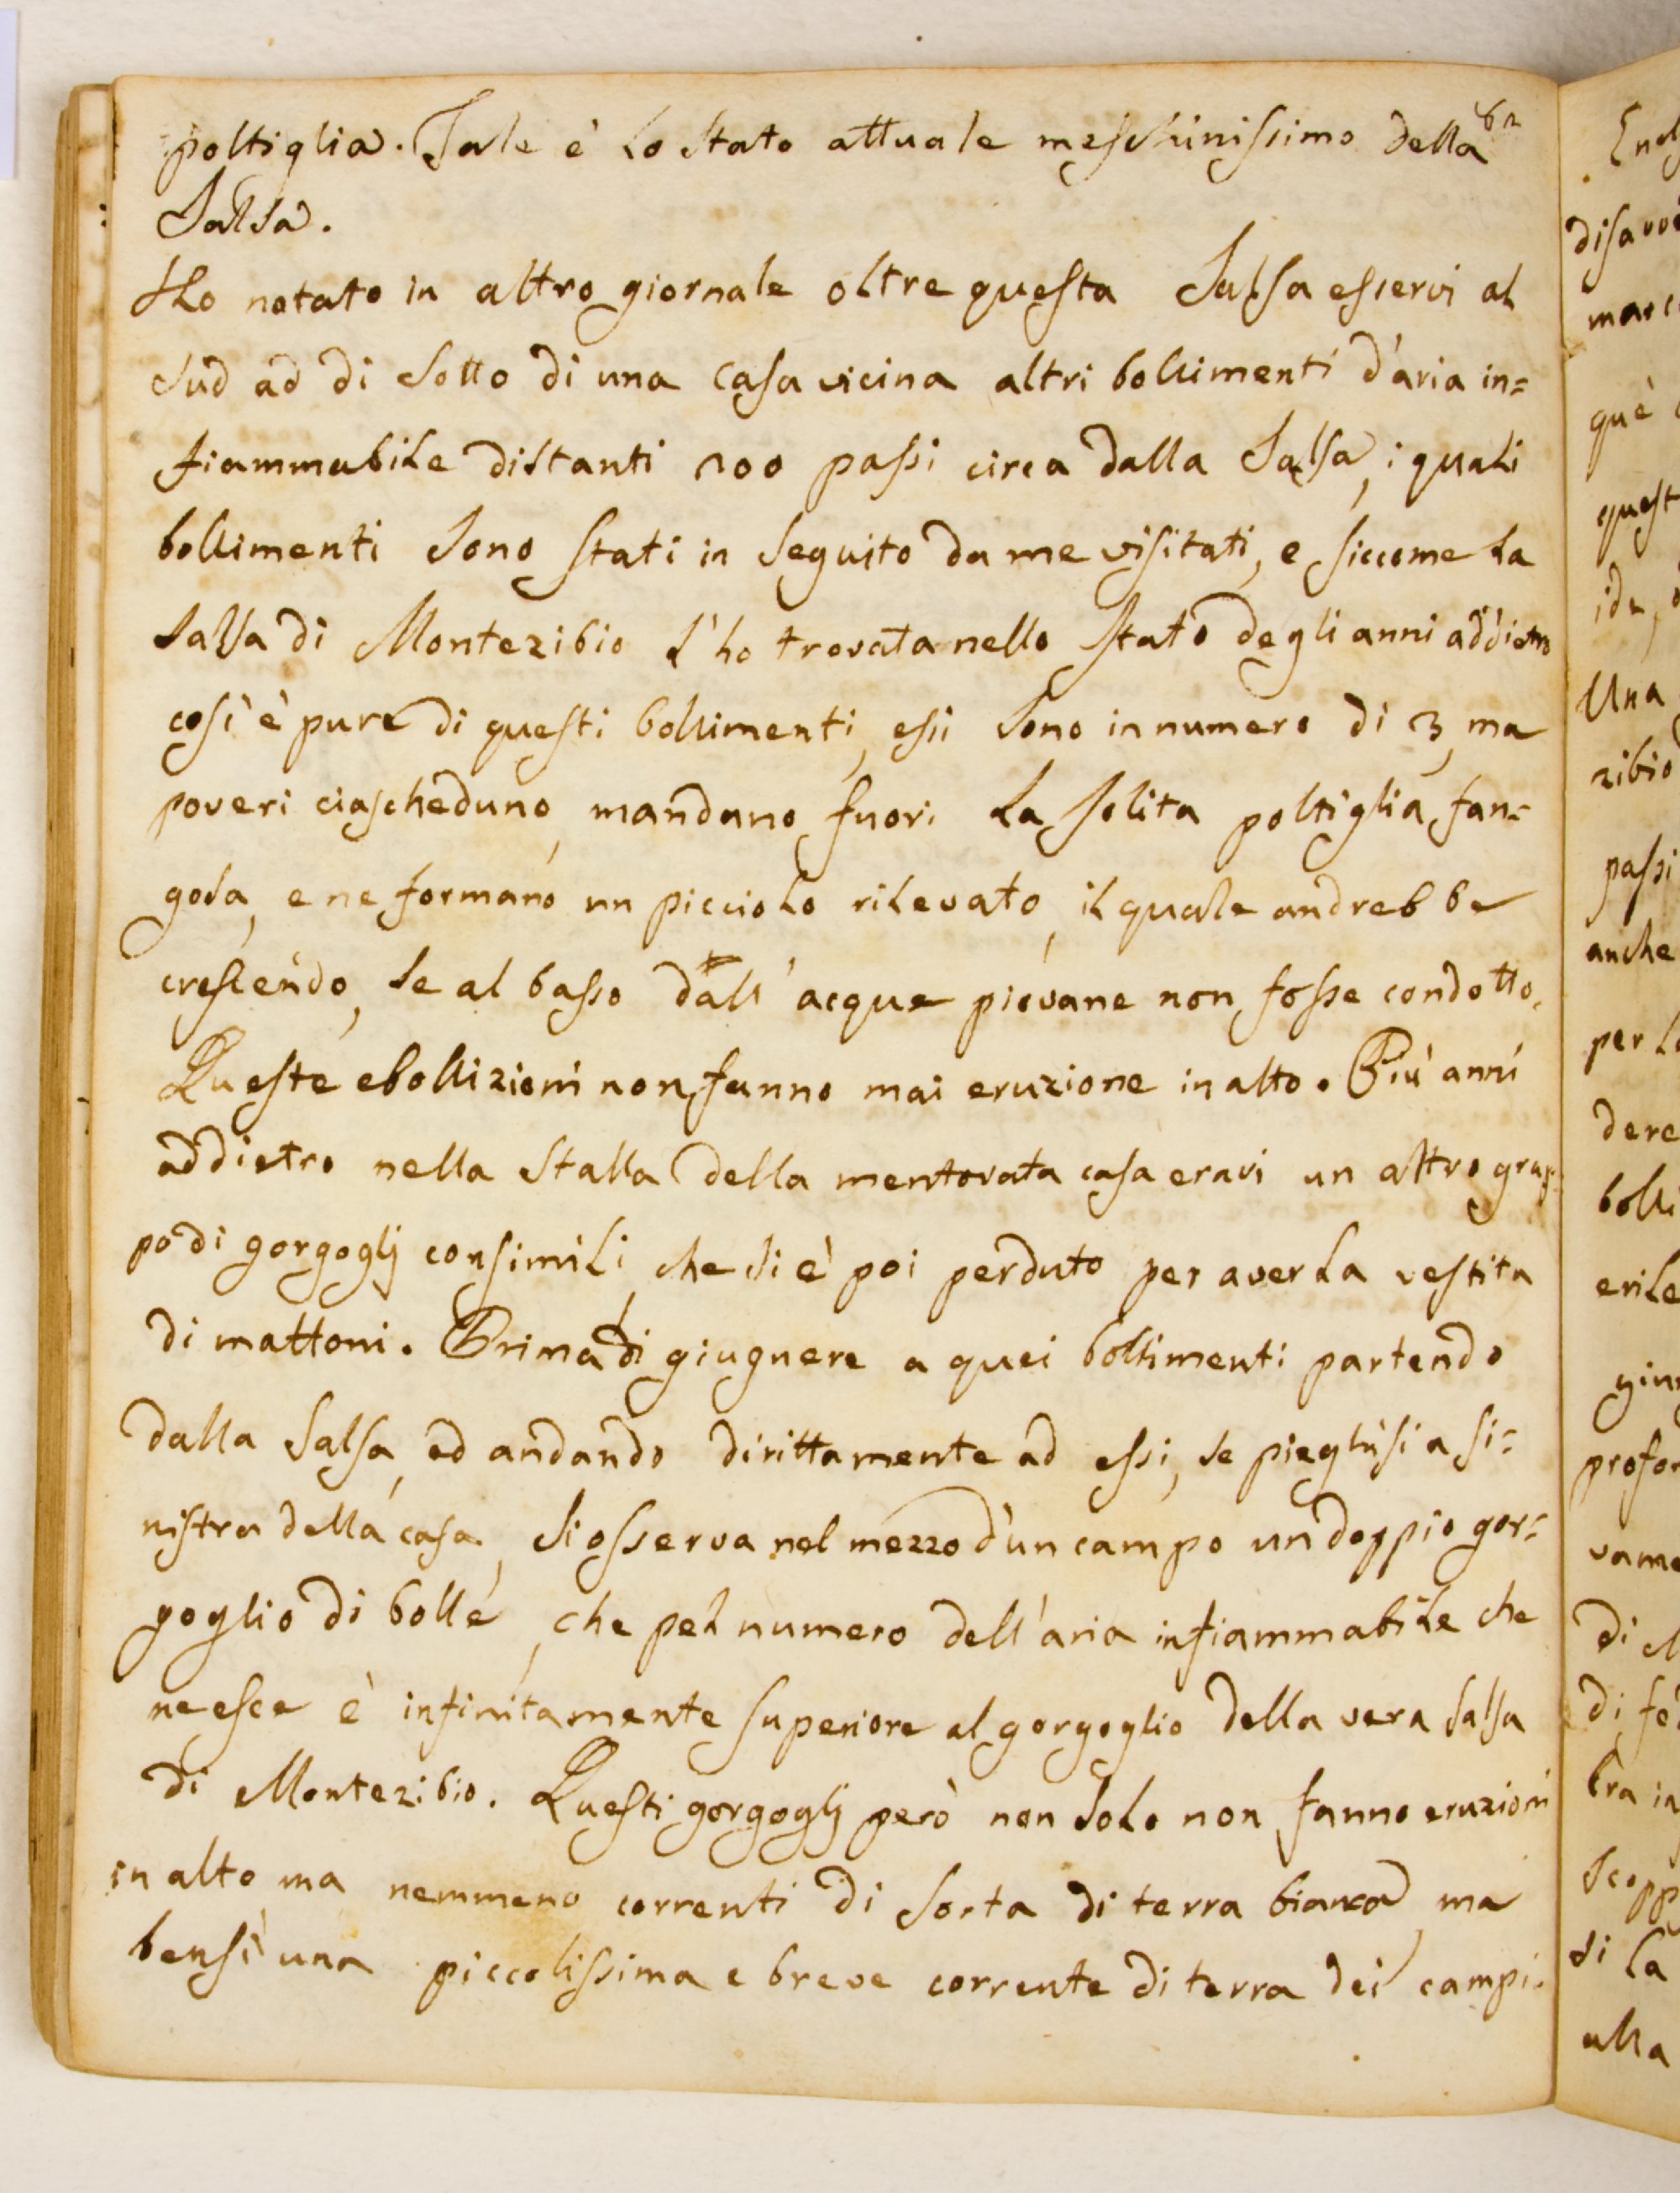 poltiglia. Tale è lo stato attuale meschinissimo della
62
Salsa.
Ho notato in altro giornale oltre questa Salsa esservi al
Sud ad di Sotto di una Casa vicina altri bollimenti d'aria in=
fiammabile distanti 100 passi circa dalla Salsa, i quali
bollimenti Sono stati in Seguito da me visitati, e siccome la
Salsa di Montezibio l'ho trovata nello stato degli anni addietro
così è pure di questi bollimenti, essi Sono in numero di 3, ma
poveri ciascheduno, mandano fuori la solita poltiglia fan=
gosa, e ne formano un picciolo rilevato, il quale andrebbe
crescendo, se al basso dall'acque piovane non fosse condotto.
Queste ebollizioni non fanno mai eruzione in alto. Più anni
addietro nella Stalla della mentovata casa eravi un altro grup=
po di gorgoglj consimili, che si è poi perduto per averla vestita
di mattoni. Prima di giugnere a quei bollimenti partendo
dalla Salsa, ed andando dirittamente ad essi, se pieghisi a si=
nistra della casa, Si osserva nel mezzo d'un campo un doppio gor=
goglio di bolle, che pel numero dell'aria infiammabile che
ne esce è infinitamente superiore al gorgoglio della vera Salsa
di Montezibio. Questi gorgoglj però non Solo non fanno eruzioni
in alto ma nemmeno correnti di Sorta di terra bianca, ma
bensì una piccolissima e breve corrente di terra dei campi.
disavv
mar
què
quest
ide,
Una
zibio
passi
anche
per l
dere
bolli
erile
giu
profo
vame
di M
di fe
bra in
Scopp
di la
alla